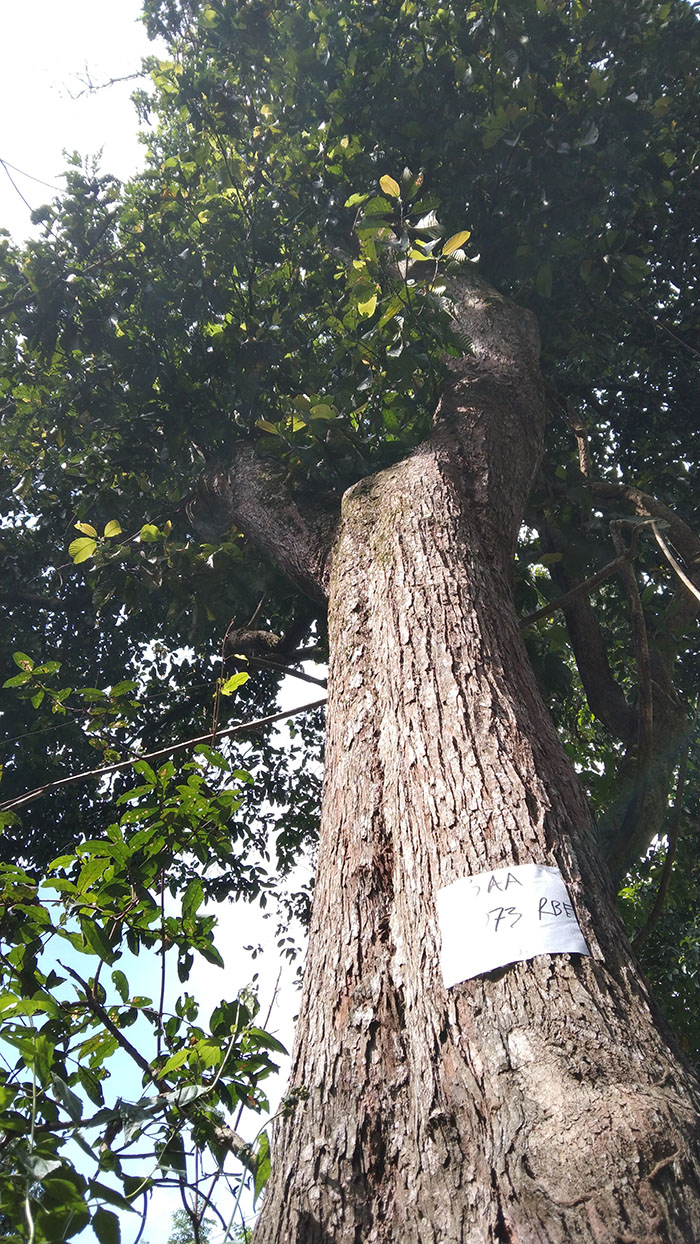 AA
073 RBE